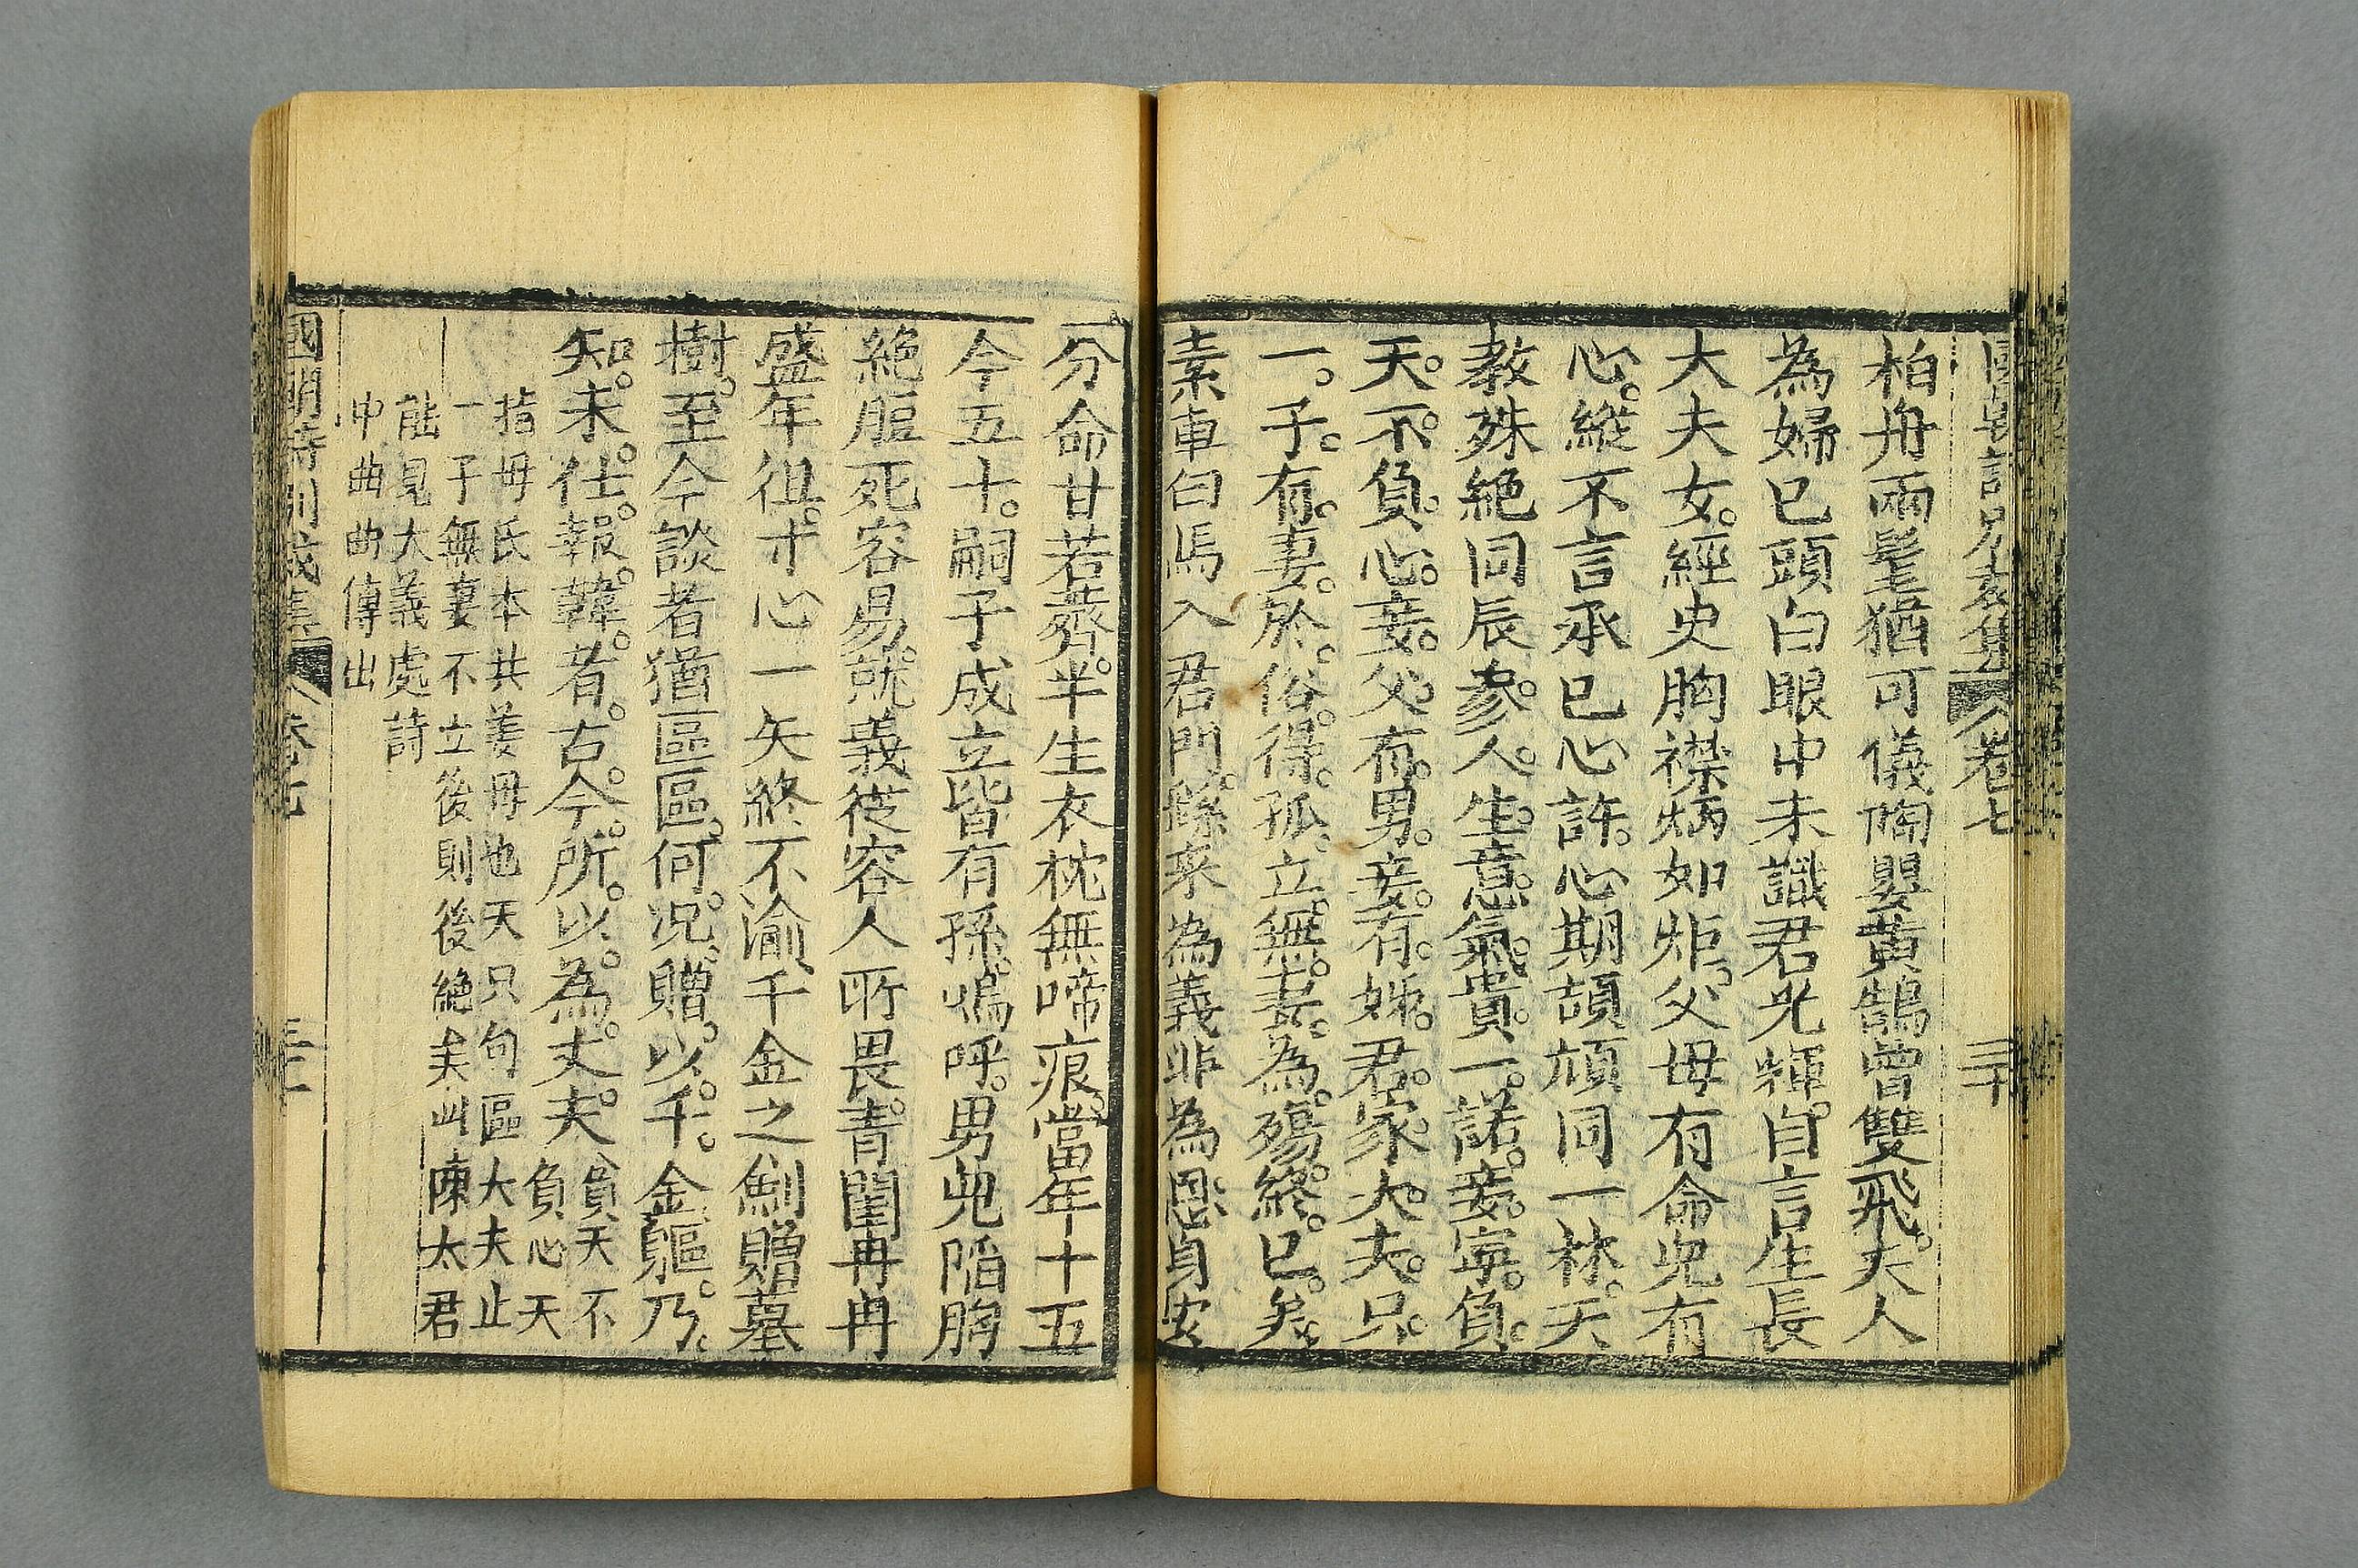 國朝詩別裁集 卷七 三十
柏舟兩髦猶可儀陶嬰黃鵠曾雙飛夫人
為婦已頭白眼中未識君光輝自言生長
大夫女經史胸襟炳如炬父母有命兒有
心縱不言承已心許心期頡頏同一林天
教殊絕同辰參人生意氣貴一諾妾寧負
天不負心妾父有男妾有姊君家大夫只
一子有妻於俗得孤立無妻為殤終已矣
素車白馬入君門繇來為義非為恩身安
分命甘若薺半生衣枕無啼痕當年十五
今五十嗣子成立皆有孫嗚呼男兒陷胸
絕脰死容易就義從容人所畏青閨冉冉
盛年徂寸心一矢終不渝千金之劍贈墓
樹至今談者猶區區何況贈以千金軀乃
知未仕報韓者古今所以為丈夫
負天不
負心天
指母氏本共姜母也天只句區大夫止
一子無妻不立後則後絕矣此陳太君
能見大義處詩
中曲曲傳出
國朝詩別裁集 卷七 三十一